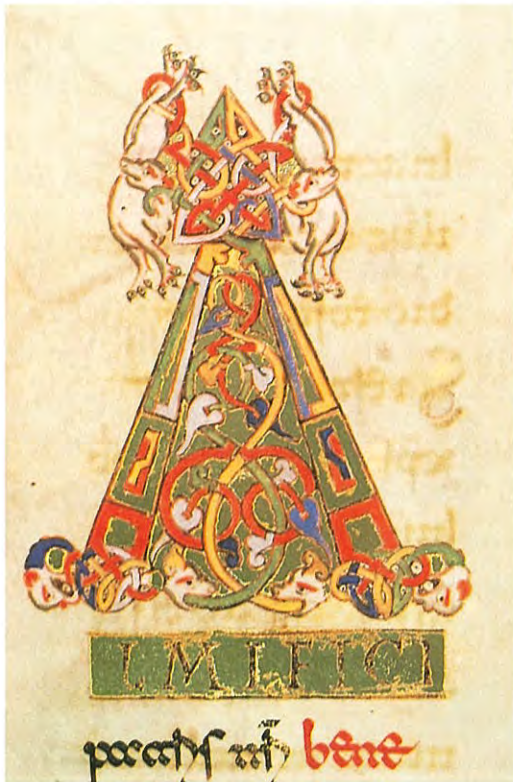 A
LMIFICI
patris nri bene